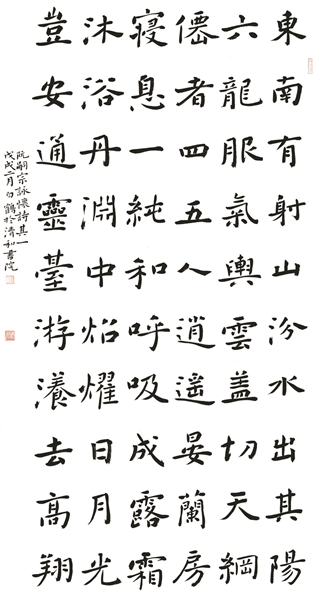 東南有射山汾水出其陽
六龍服氣輿雲盖切天綱
僊者四五人逍遥晏蘭房
寢息一純和呼吸成露霜
沐浴丹淵中炤燿日月光
豈安通靈臺游瀁去高翔
阮嗣宗詠懷詩其一
戊戌二月白鶴於清和書院